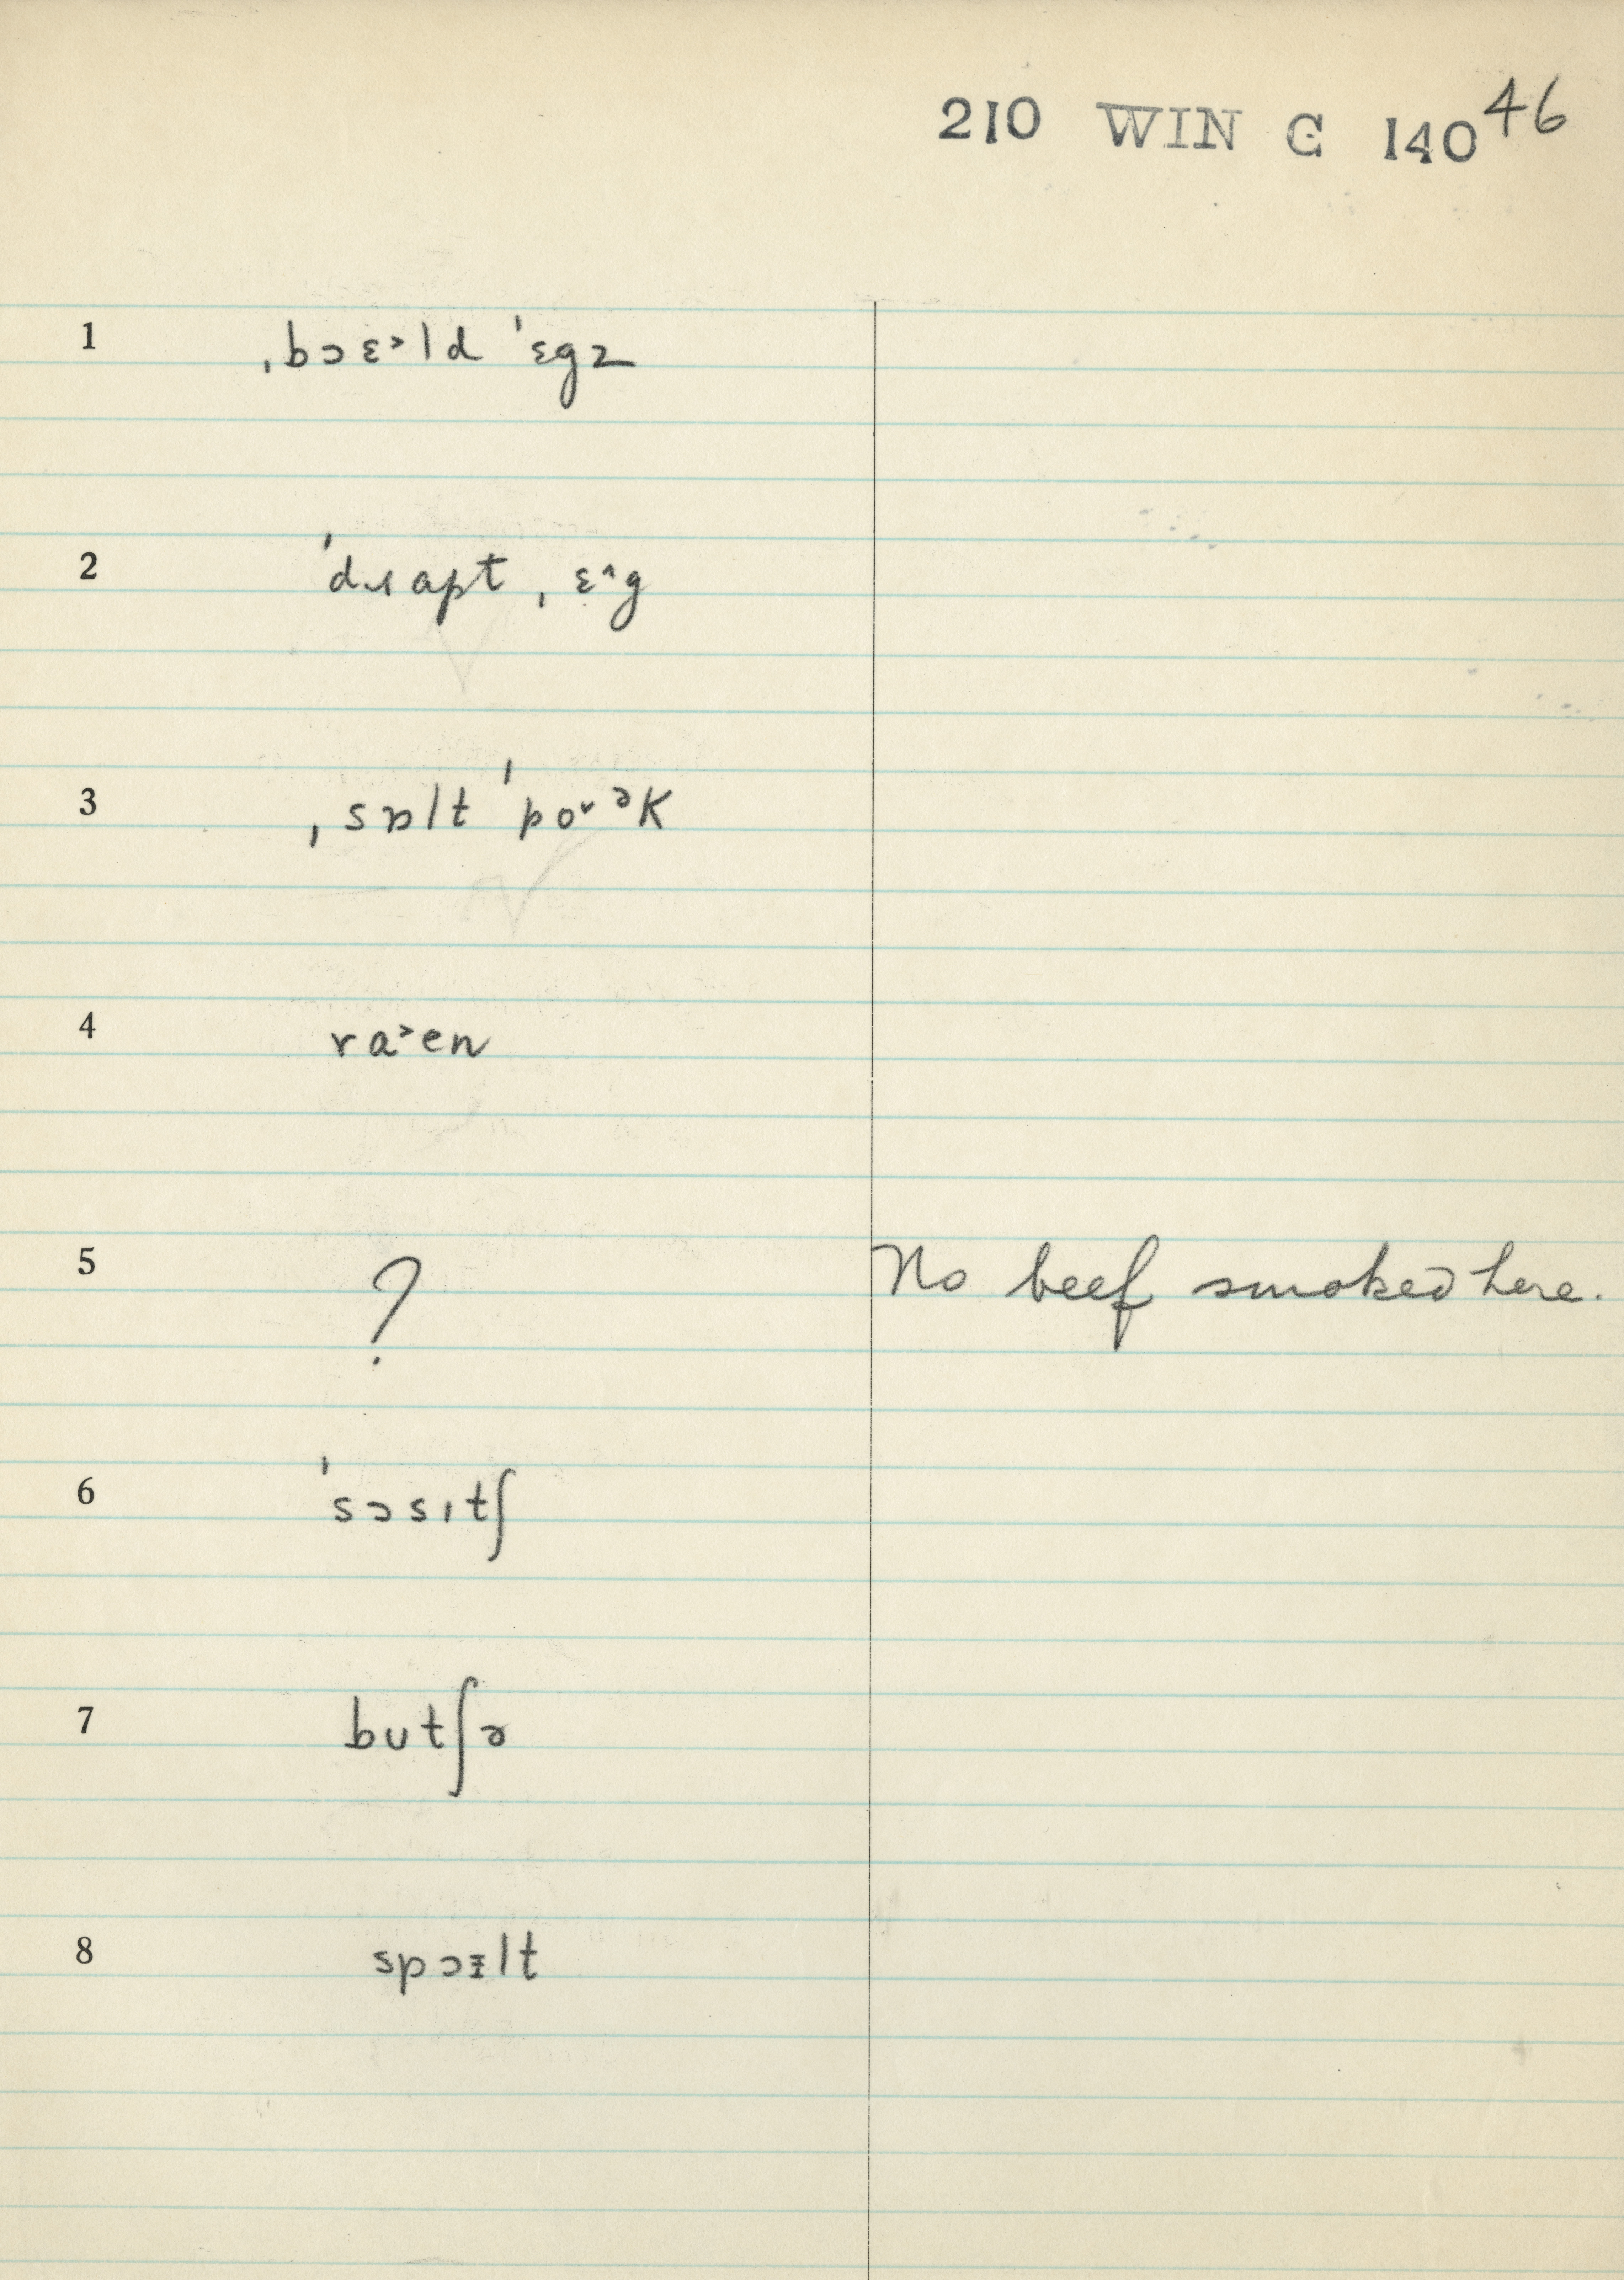 210 WIN C 140 46
1 ˌbɔɛ˃ld ˈɛgz
2 ˈdɹapt ˌɛ˄g
3 ˌsɒlt ˈpo˅ᵊk
4 ra˃en
5 ? No beef smoked here.
6 ˈsɔsɪtʃ
7 butʃə
8 spɔɪlt